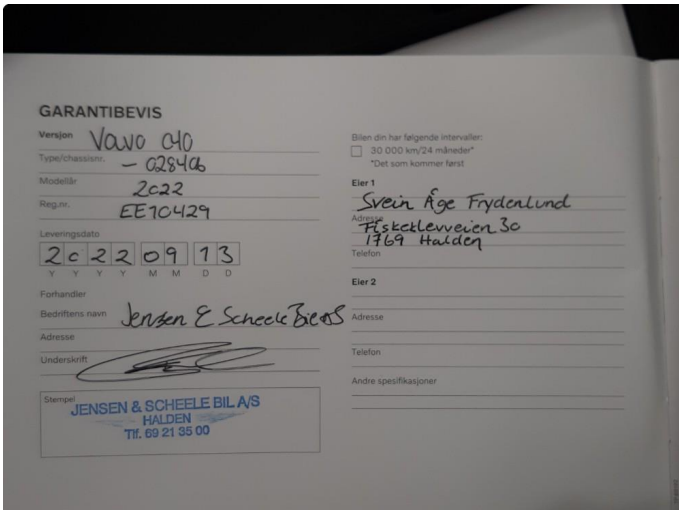 GARANTIBEVIS
Versjon Volvo C40
Type/chassisnr. - 028406
Modellår 2022
Reg.nr. EE10429
Leveringsdato
2022 09 13
Y Y Y Y M M D D
Forhandler
Bedriftens navn Jensen & Scheele Bil AS
Adresse
Underskrift
Stempel
JENSEN & SCHEELE BIL A/S
HALDEN
Tlf. 69 21 35 00
Bilen din har følgende intervaller:
30 000 km/24 måneder*
*Det som kommer først
Eier 1
Svein Åge Frydenlund
Adresse Fiskeløvveien 30
1769 Halden
Telefon
Eier 2
Adresse
Telefon
Andre spesifikasjoner